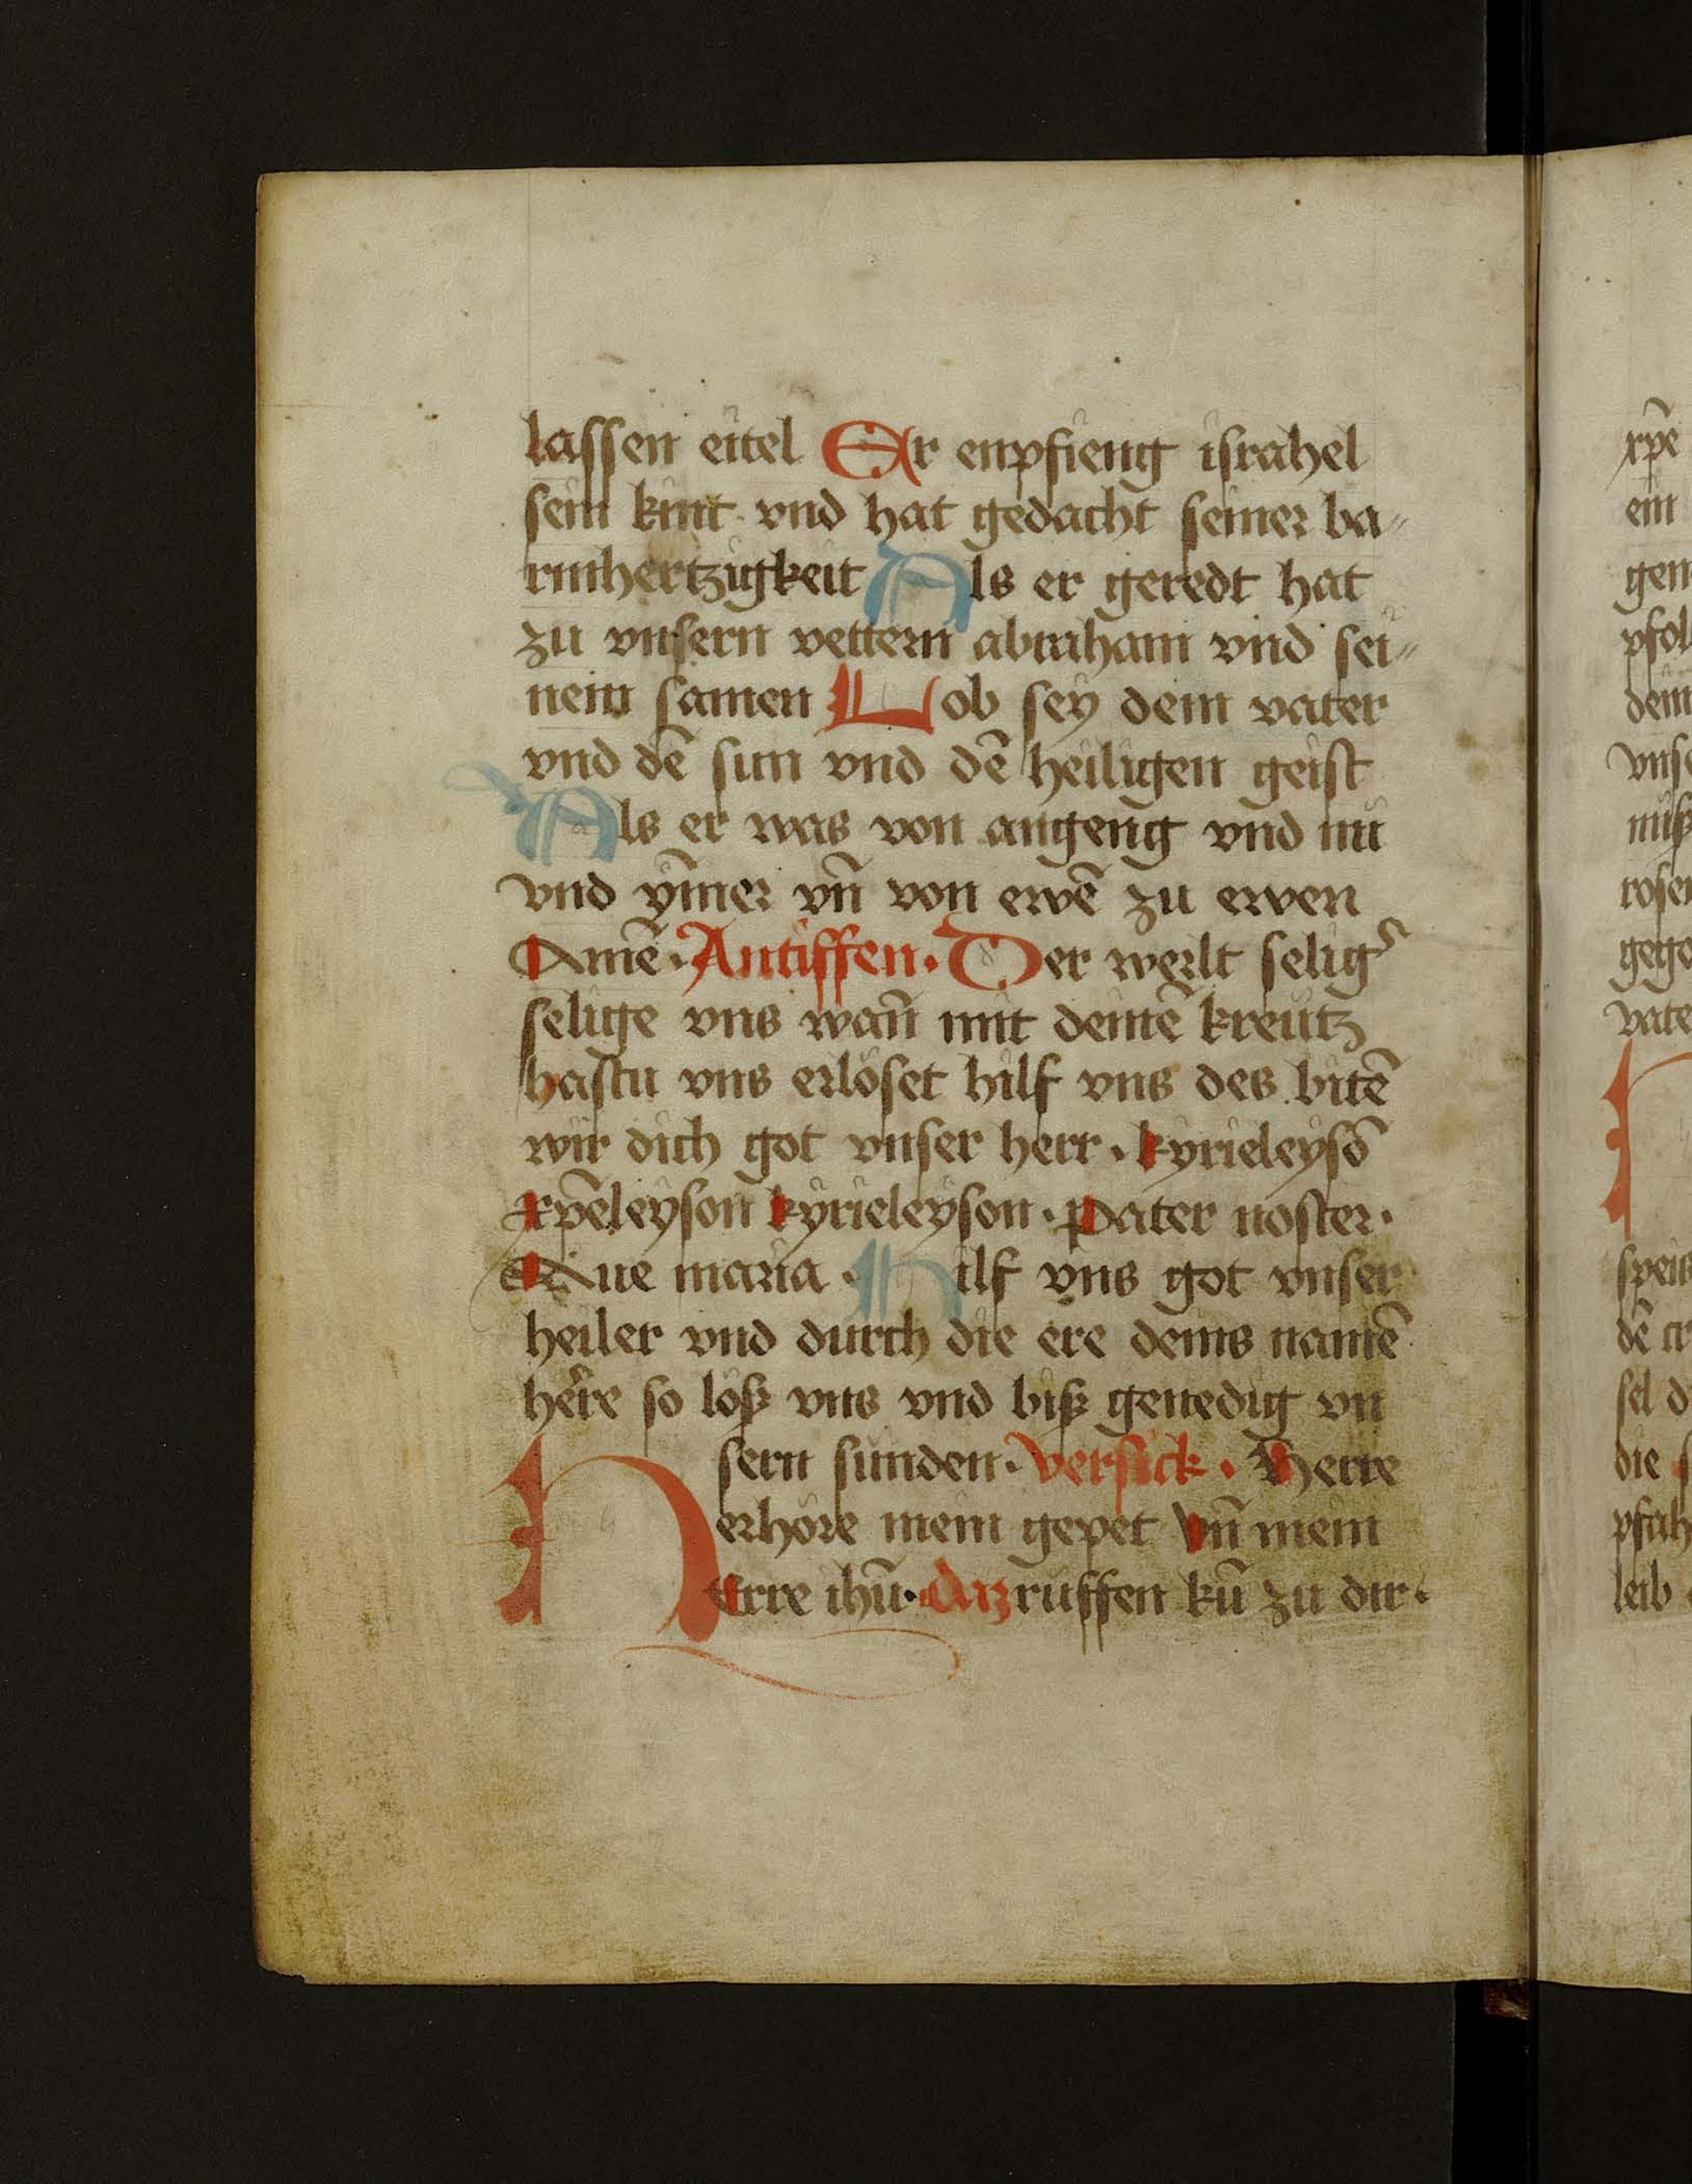 lassen eitel Er enpfieng israhel
sein kint vnd hat gedacht seiner ba〃
rmhertzigkeit Als er geredt hat
zu vnsern vettern abraham vnd sei〃
nem samen Lob sey dem vater
vnd dē sun vnd dē heiligen geist
Als er was von angeng vnd nu
vnd ȳmer vn̄ von ewē zu ewen
Amē · Antiffen · Der werlt selig᷑
selige vns wan̄ mit deinē kreutz
hastu vns erlöset hilf vns des bitē
wir dich got vnser herr · kyrieleysō
xp̄eleyson kyrieleyson · pater noster ·
Aue maria · Hilf vns got vnser
heiler vnd durch die ere deins namē
herre so löß vns vnd biß genedig vn
sern sunden · versick · Herre
erhöre mein gepet vn̄ mein
HErre ihū · daz ruffen kū zu dir ·
xp̄e
ein
gen
pfol
dem
vnse
nuß
rosen
gege
vate
speis
dē cr
sel d
die s
pfah
leib